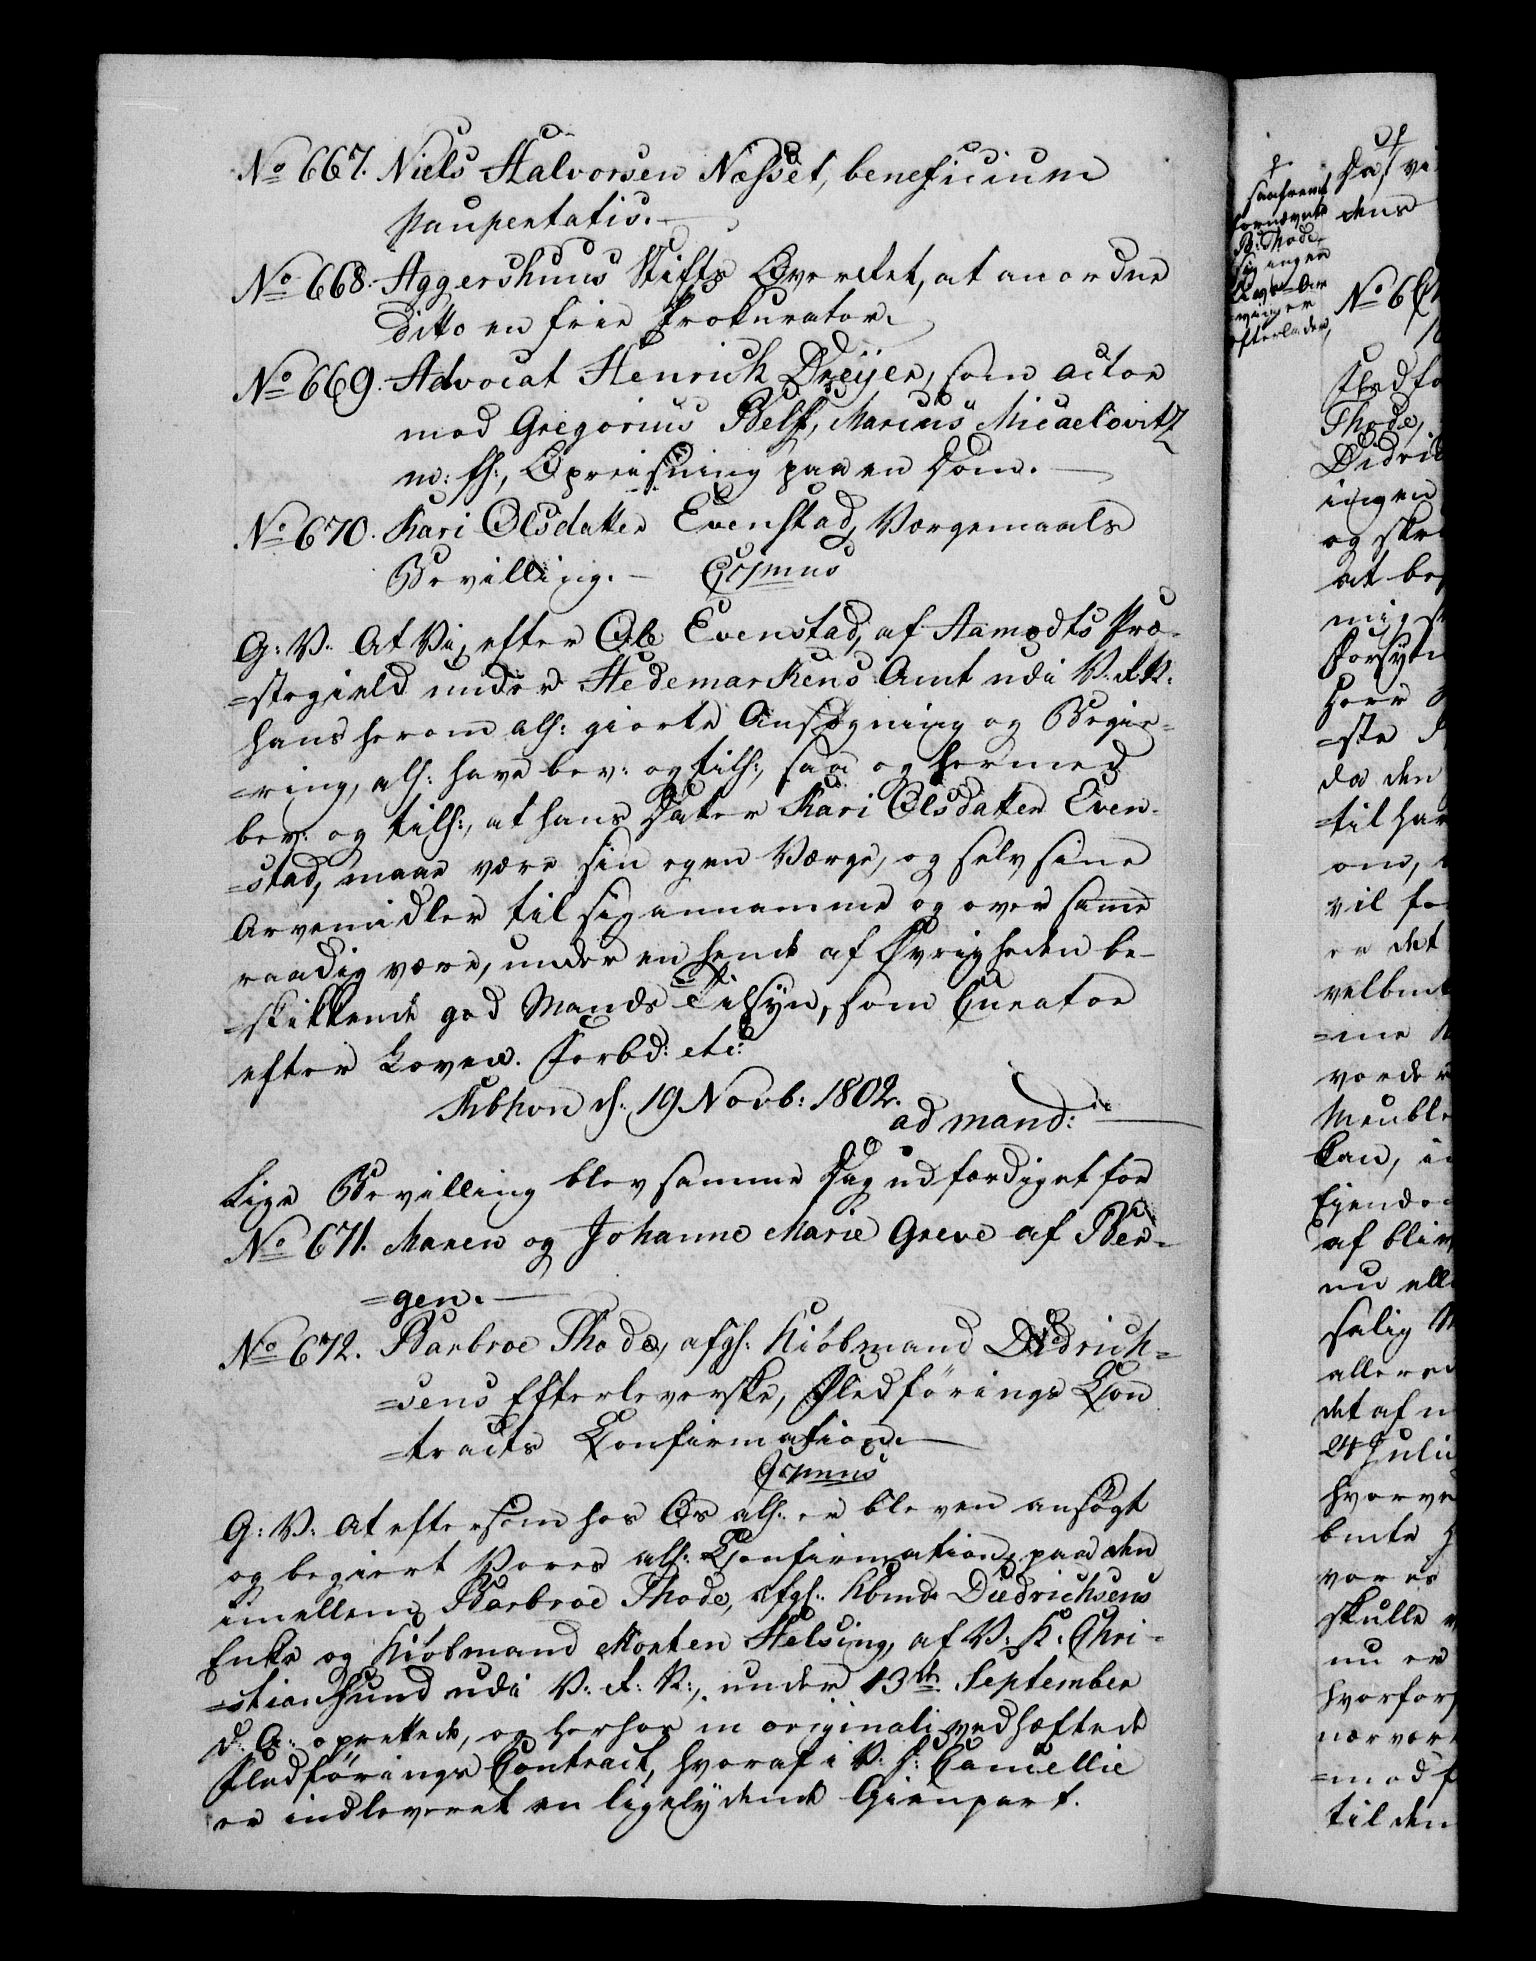 No 667. Niels Halvorsen Næsset, beneficium
paupertatis.
No 668. Aggershuus Stifts Overrétet, at anordne
ditto en frie Prokurator.
No 669. Advocat Henrich Dreijer, som actor
mod Gregorius Belf, Marcus Micaelovitz
m: fl:, Opreisning paa en Dom.
No 670. Kari Olsdatter Evenstad, Værgemaals
Bevilling. -
G: V: At Vi, efter Ole Evenstad, af Aamodts Præ-
=stegield under Hedemarkens Amt udi V. R. N.
hans herom all: giorte Ansøgning og Begie-
=ring, all: have bev: og till:, saa og hermed
bev: og till:, at hans Datter Kari Olsdatter Even-
=stad, maae være sin egen Værge, og selv sine
Arvemidler til sig annamme og over samme
raadig være, under en hende af Øvrigheden be-
=skikkende god Mands Tilsyn, som Curator
efter Loven. Forbd: etc:
Kbhvn d: 19 Novb: 1802.
ad mand:
Lige Bevilling blev samme Dag udfærdiget for
No 671. Maren og Johanne Marie Greve af Ber-
=gen.
No 672. Barbroe Thode, afg: Kiöbmand Didrich-
=sens Efterleverske, Fledførings Con
=tracts Confirmation.
G: V: At eftersom hos Os all: er bleven ansøgt
og begiert Vores all: Confirmation paa den
imellem Barbroe Thode, afg: Kbmd: Diedrichsens
Enke og Kiöbmand Morten Helsing, af V: K: Chri-
=stiansund udi V: R: N:, under 13de September
d: A: oprettede, og herhos in originali vedhæftede
Fledførings Contract, hvoraf i V. D: Cancellie
er indleveret en ligelydende Gienpart.
saafremt
fornævnte
B: Thode
sig ingen
Livs-Ar
vinger
efterlader,